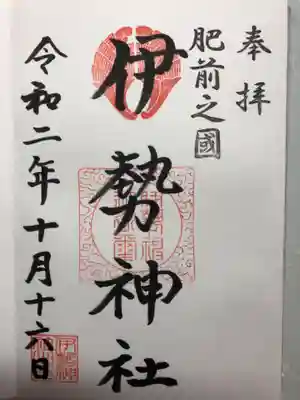 奉拝
肥前之國
伊勢神社
令和二年十月十六日